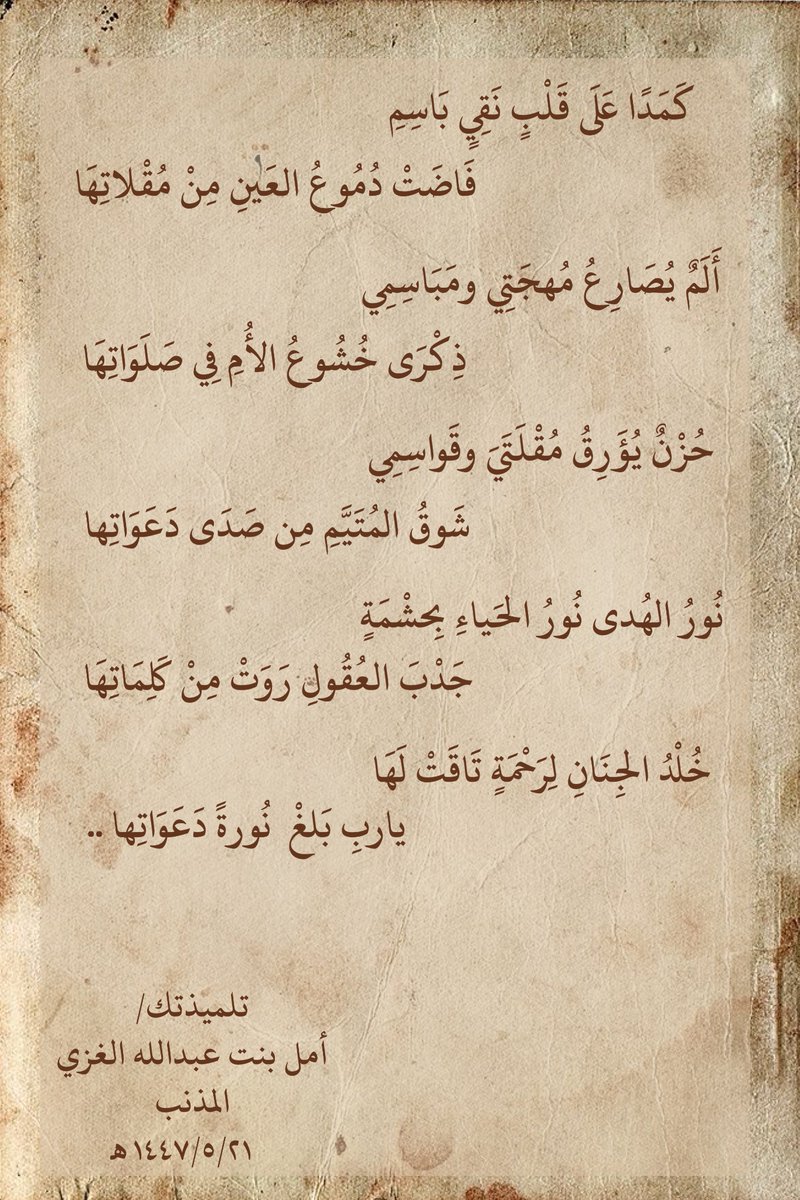 كَمَدًا عَلَى قَلْبٍ نَقِيٍ بَاسِمِ
فَاضَتْ دُمُوعُ العَينِ مِنْ مُقْلاتِهَا
أَلَمٌ يُصَارِعُ مُهجَتِي ومَبَاسِمِي
ذِكْرَى خُشُوعُ الأُمِ فِي صَلَوَاتِهَا
حُزْنٌ يُؤَرِقُ مُقْلَتَيَ وقَواسِمِي
شَوقُ المُتَيَّمِ مِن صَدَى دَعَوَاتِها
نُورُ الهُدى نُورُ الحَياءِ بِحشْمَةٍ
جَدْبَ العُقُولِ رَوَتْ مِنْ كَلِمَاتِهَا
خُلْدُ الجِنَانِ لِرَحْمَةٍ تَاقَتْ لَهَا
يارب‍ِ بَلغْ نُورةً دَعَوَاتِها ..
تلميذتك/
أمل بنت عبدالله الغزي
المذنب
١٤٤٧/٥/٢١هـ